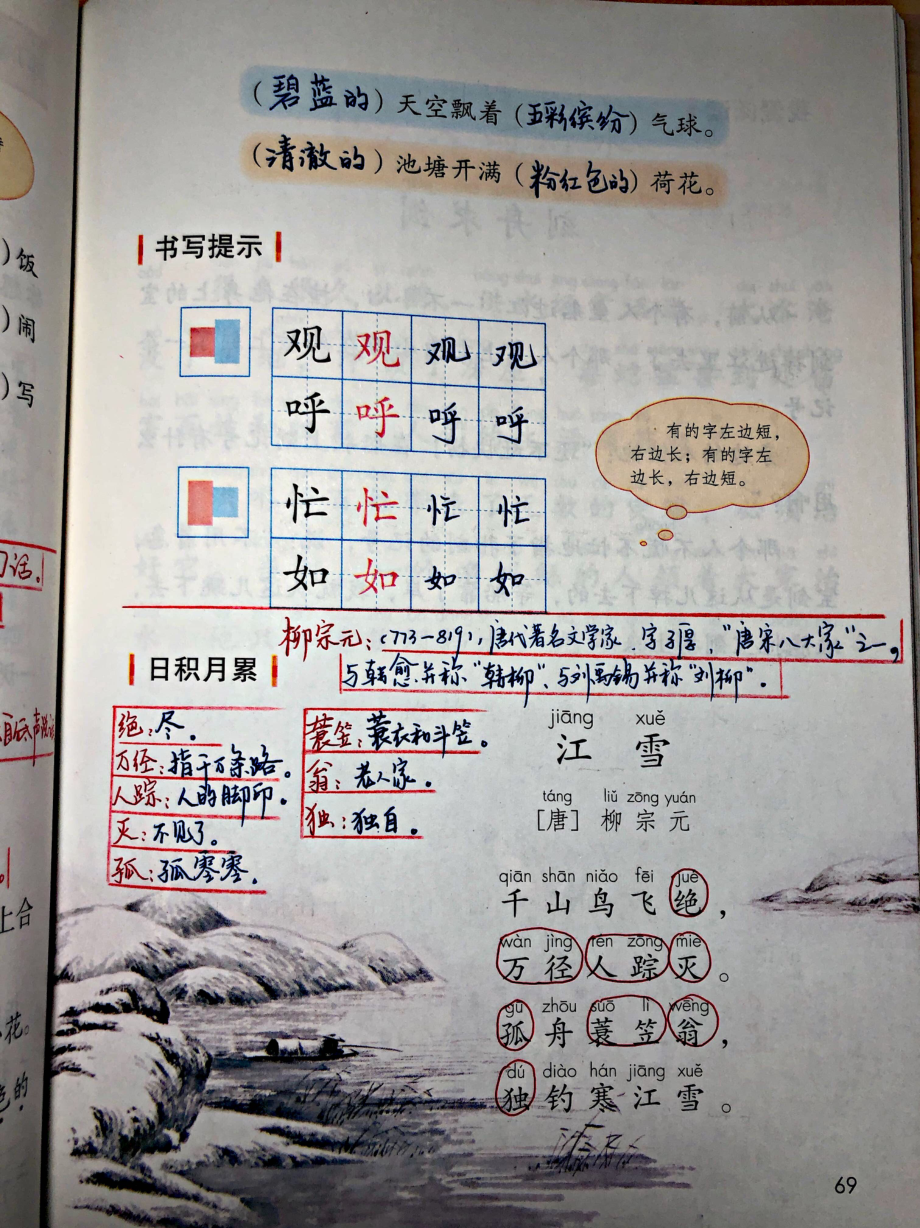 (碧蓝的)天空飘着(五彩缤纷)气球。
(清澈的)池塘开满(粉红色的)荷花。
书写提示
观 观 观 观
呼 呼 呼 呼
有的字左边短，
右边长；有的字左
边长，右边短。
忙 忙 忙 忙
如 如 如 如
柳宗元：(773—819)，唐代著名文学家，字子厚，"唐宋八大家"之一，
与韩愈并称"韩柳"、与刘禹锡并称"刘柳"。
日积月累
绝：尽。
万径：指千万条路。
人踪：人的脚印。
灭：不见了。
孤：孤零零。
蓑笠：蓑衣和斗笠。
翁：老人家。
独：独自。
jiāng xuě
江 雪
táng liǔ zōng yuán
［唐］ 柳 宗 元
qiān shān niǎo fēi jué
千 山 鸟 飞 绝，
wàn jìng rén zōng miè
万 径 人 踪 灭。
gū zhōu suō lì wēng
孤 舟 蓑 笠 翁，
dú diào hán jiāng xuě
独 钓 寒 江 雪。
69
)饭
)闹
)写
话。
上合
花。
色的